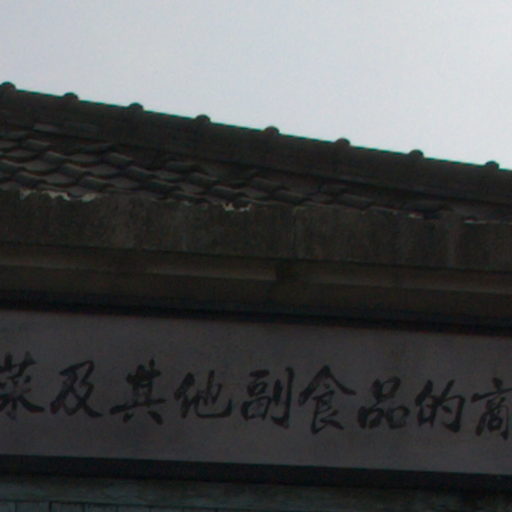 菜及其他副食品的商